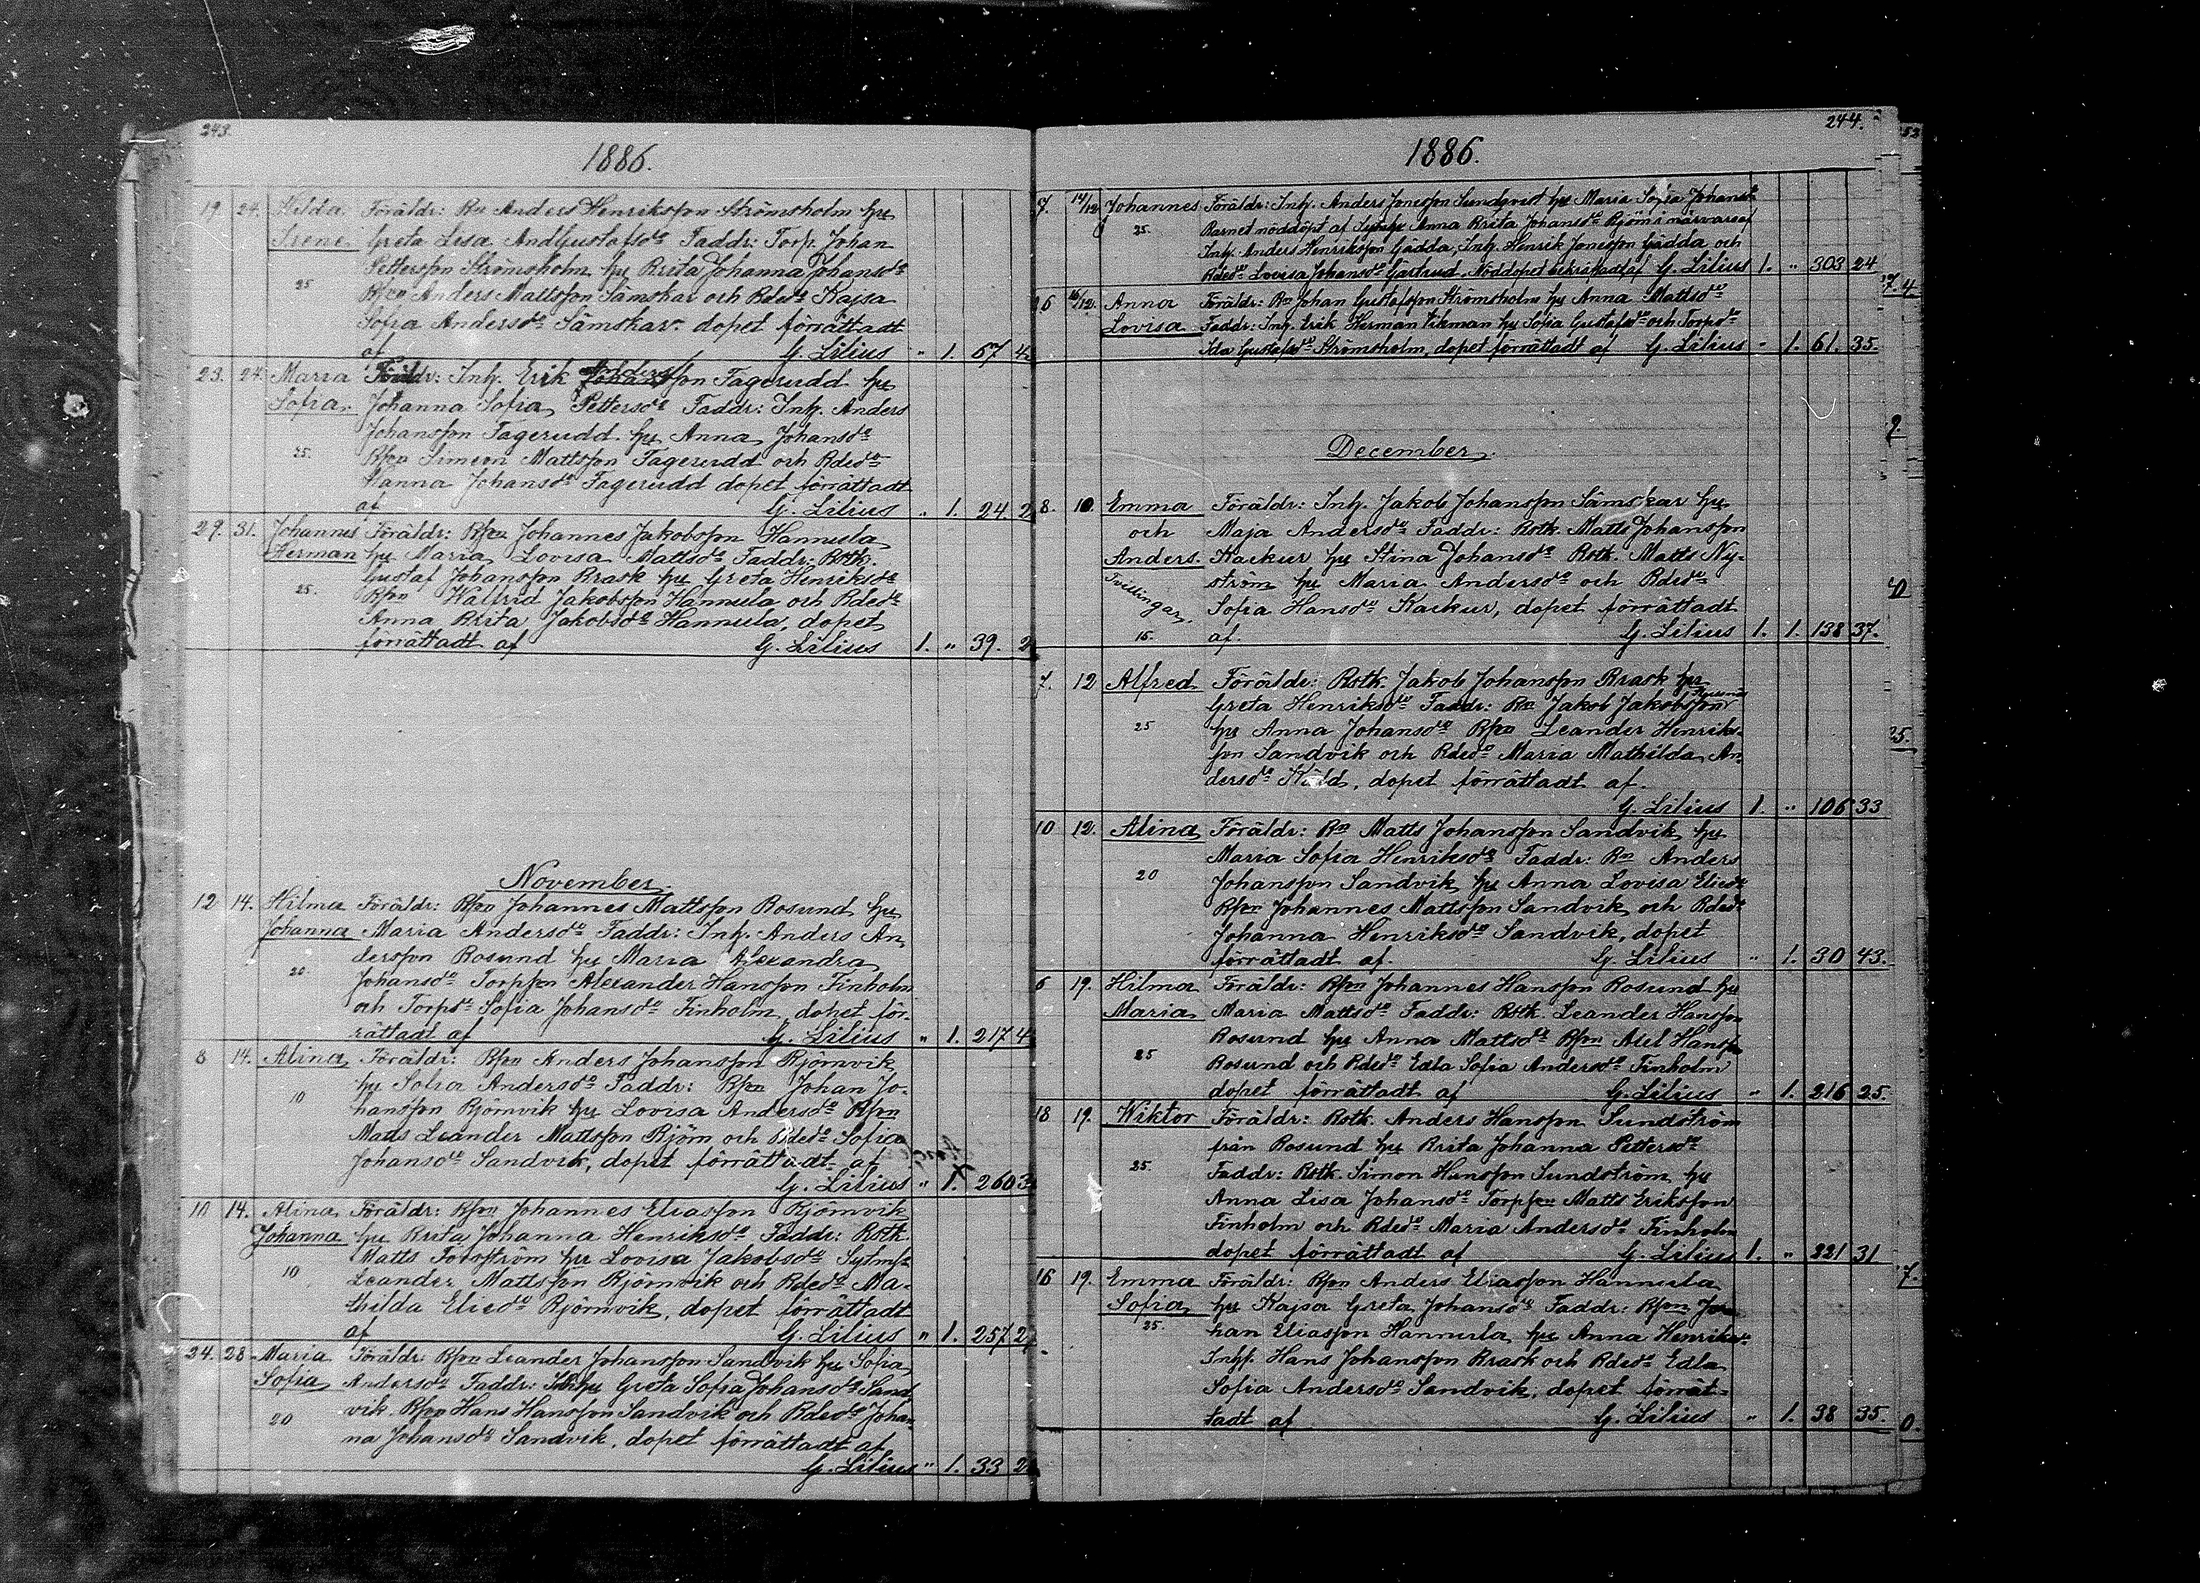 243.
1886.
19. 24. Hilda Föräldr: Bn Anders Henriksson Strömsholm hu
Irene Greta Lisa AndGustafsdr Faddr: Torp. Johan
Pettersson Strömsholm hu Brita Johanna Johansdr
25 Bson Anders Mattsson Sämskar och Bdedr Kajsa
Sofia Andersdr Sämskar dopet förrättadt
af G. Lilius " 1. 67 4
23. 24. Maria Föräldr: Inh. Erik Andersson Fagerudd hu
Sofia Johanna Sofia Pettersdr Faddr: Inh. Anders
Johansson Fagerudd hu Anna Johansdr
25. Bson Simeon Mattsson Fagerudd och Bdedr
Hanna Johansdr Fagerudd dopet förrättadt
af G. Lilius " 1. 24. 2
29. 31. Johannes Föräldr: Bson Johannes Jakobsson Hannula
Herman hu Maria Lovisa Mattsdr Faddr: Botk.
Gustaf Johansson Brask hu Greta Henriksdr
25. Bson Walfrid Jakobsson Hannula och Bdedr
Anna Brita Jakobsdr Hannula, dopet
förrättadt af G. Lilius 1. " 39. 2
November.
12 14. Hilma Föräldr: Bson Johannes Mattsson Bosund hu
Johanna Maria Andersdr Faddr: Inh. Anders An
dersson Bosund hu Maria Alexandra
20. Johansdr Torpson Alexander Hansson Finholm
och Torpdr Sofia Johansdr Finholm dopet för-
rättadt af G. Lilius " 1. 217 4
8 14. Alina Föräldr: Bson Anders Johansson Björnvik
hu Sofia Andersdr Faddr: Bson Johan Jo-
10 hansson Björnvik hu Lovisa Andersdr Bson
Matts Leander Mattsson Björn och Bdedr Sofia
Johansdr Sandvik, dopet förrättadt af
G. Lilius " 1. 260 3
10 14. Alina Föräldr: Bson Johannes Eliasson Björnvik
Johanna hu Brita Johanna Henriksdr Faddr: Botk.
Matts Forsström hu Lovisa Jakobsdr
10 Leander Mattsson Björnvik och Bdedr Ma-
thilda Eliedr Björnvik, dopet förrättadt
af G. Lilius " 1. 257. 2
24. 28 Maria Föräldr: Bson Leander Johansson Sandvik hu Sofia
Sofia Andersdr Faddr: Greta Sofia Johansdr Sand
20 vik Bson Hans Hansson Sandvik och Bdedr Joha-
na Johansdr Sandvik, dopet förrättadt af
G. Lilius " 1. 33 2
244.
1886.
7. 14/12 Johannes Föräldr: Inh. Anders Jonesson Sundqvist hu Maria Sofia Johansdr
25. Barnet nöddöpt af Anna Brita Johansdr Björn i närvaro af
Inh. Anders Henriksson Gädda, Inh. Henrik Jonesson Gädda och
Bdedr Lovisa Johansdr Gertrud. Nöddopet bekräftadt af G. Lilius 1. " 303 24
6 16/12. Anna Föräldr: Bn Johan Gustafsson Strömsholm hu Anna Mattsdr
Lovisa Faddr: Inh. Erik Herman Vikman hu Sofia Gustafsdr och Torpdr
Ida Gustafsdr Strömsholm, dopet förrättadt af G. Lilius " 1. 61. 35.
December.
8. 10. Emma Föräldr: Inh. Jakob Johansson Sämskar hu
och Maja Andersdr Faddr: Botk. Matts Johansson
Anders. Kackur hu Stina Johansdr Botk. Matts Ny-
Tvillingar. ström hu Maria Andersdr och Bdedr
Sofia Hansdr Kackur, dopet förrättadt
15. af. G. Lilius 1. 1. 138 37.
7. 12 Alfred Föräldr: Botk. Jakob Johansson Brask hu
Greta Henriksdr Faddr: Bn Jakob Jakobsson
25 hu Anna Johansdr Bson Leander Henriks-
son Sandvik och Bdedr Maria Mathilda An-
dersdr, dopet förrättadt af.
G. Lilius 1. " 106 33
10 12. Alina Föräldr: Bn Matts Johansson Sandvik hu
Maria Sofia Henriksdr Faddr: Bn Anders
20 Johansson Sandvik hu Anna Lovisa Eliedr
Bson Johannes Mattsson Sandvik och Bdedr
Johanna Henriksdr Sandvik, dopet
förrättadt af. G. Lilius " 1. 30 43.
6 19. Hilma Föräldr: Bson Johannes Hansson Bosund hu
Maria Maria Mattsdr Faddr: Botk. Leander Hansson
25 Bosund hu Anna Mattsdr Bson Axel Hansson
Bosund och Bdedr Edla Sofia Andersdr Finholm
dopet förrättadt af G. Lilius " 1. 216 25.
18 19. Wiktor Föräldr: Botk. Anders Hansson Sundström
från Bosund hu Brita Johanna Pettersdr
25. Faddr: Botk. Simon Hansson Sundström hu
Anna Lisa Johansdr Torpson Matts Eriksson
Finholm och Bdedr Maria Andersdr Finholm
dopet förrättadt af G. Lilius 1. " 221 31
16 19. Emma Föräldr: Bson Anders Eliasson Hannula
Sofia hu Kajsa Greta Johansdr Faddr: Bson Jo
25. han Eliasson Hannula hu Anna Henriksdr
Inhs. Hans Johansson Brask och Bdedr Edla
Sofia Andersdr Sandvik, dopet förrät-
tadt af G. Lilius " 1. 38 35.